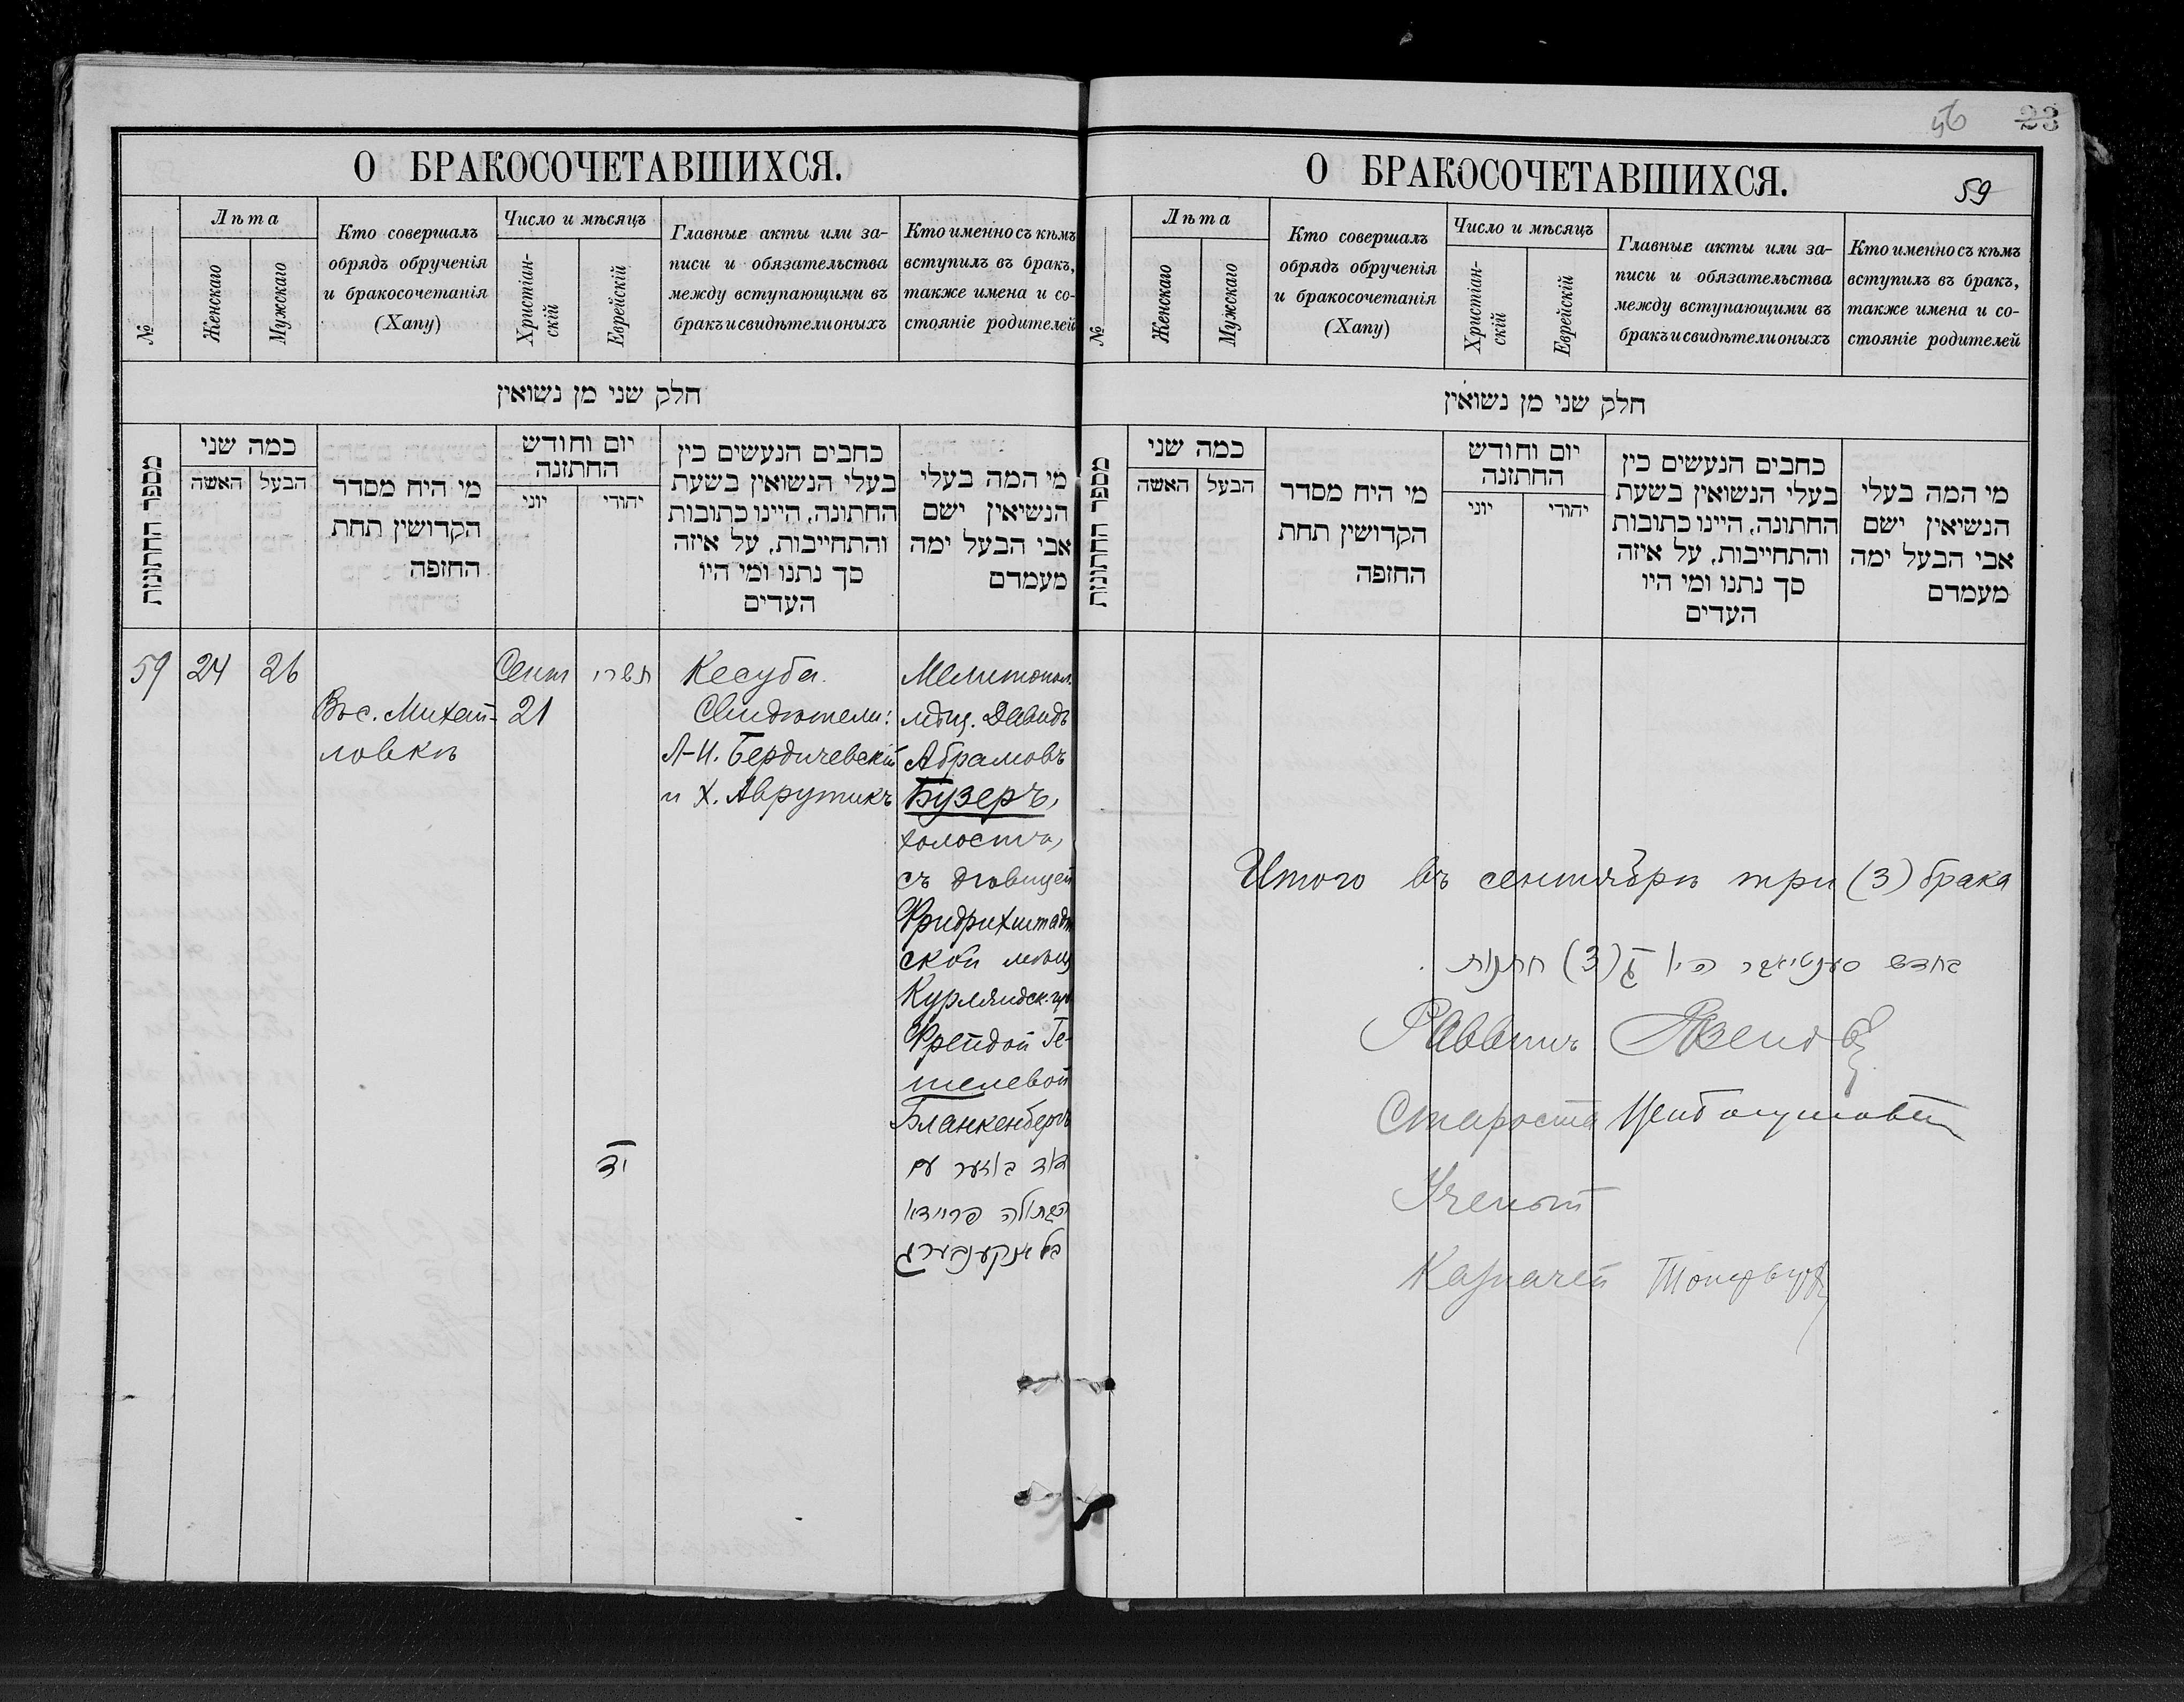 О БРАКОСОЧЕТАВШИХСЯ.
№
Лѣта
Женскаго
Мужскаго
Кто совершалъ
обрядъ обрученія
и бракосочетанія
(Хапу)
Число и мѣсяцъ
Христіан-
скій
Еврейскій
Главные акты или за-
писи и обязательства
между вступающими въ
бракъ и свидѣтели оныхъ
Кто именно съ кѣмъ
вступилъ въ бракъ,
также имена и со-
стояніе родителей
חלק שני מן נשואין
מספר החתונות
כמה שני
האשה
הבעל
מי היח מסדר
הקדושין תחת
החופה
יום וחודש
החתונה
יוני
יהודי
כחבים הנעשים כין
בעלי הנשואין בשעת
החתונה, היינו כתובות
והתחייבות, על איזה
סך נתנו ומי היו
העדים
מי המה בעלי
הנשיאין ישם
אבי הבעל ימה
מעמדם
59
24
26
Въ с. Михай-
ловкѣ
Сент
21
תשרי
יד
Кесуба.
Свидѣтели:
Л-И. Бердичевскій
и Х. Аврутикъ
Мелитопол.
мѣщ. Давидъ
Абрамовъ
Бузеръ,
холостъ,
съ дѣвицей
Фридрихштадт
ской мѣщ
Курляндск. губ
Фрейдой Ге-
шелевой
Бланкенбергъ
דוד בוזער עם
הבתולה פריידא
בלאנקענבערג
56
23
О БРАКОСОЧЕТАВШИХСЯ.
59
№
Лѣта
Женскаго
Мужскаго
Кто совершалъ
обрядъ обрученія
и бракосочетанія
(Хапу)
Число и мѣсяцъ
Христіан-
скій
Еврейскій
Главные акты или за-
писи и обязательства
между вступающими въ
бракъ и свидѣтели оныхъ
Кто именно съ кѣмъ
вступилъ въ бракъ,
также имена и со-
стояніе родителей
חלק שני מן נשואין
מספר החתונות
כמה שני
האשה
הבעל
מי היח מסדר
הקדושין תחת
החופה
יום וחודש
החתונה
יוני
יהודי
כחבים הנעשים כין
בעלי הנשואין בשעת
החתונה, היינו כתובות
והתחייבות, על איזה
סך נתנו ומי היו
העדים
מי המה בעלי
הנשיאין ישם
אבי הבעל ימה
מעמדם
Итого въ сентябрѣ три (3) брака
בחדש סענטיאבר היו ג (3) חתנות
Раввинъ
Староста
Ученый
Казначей